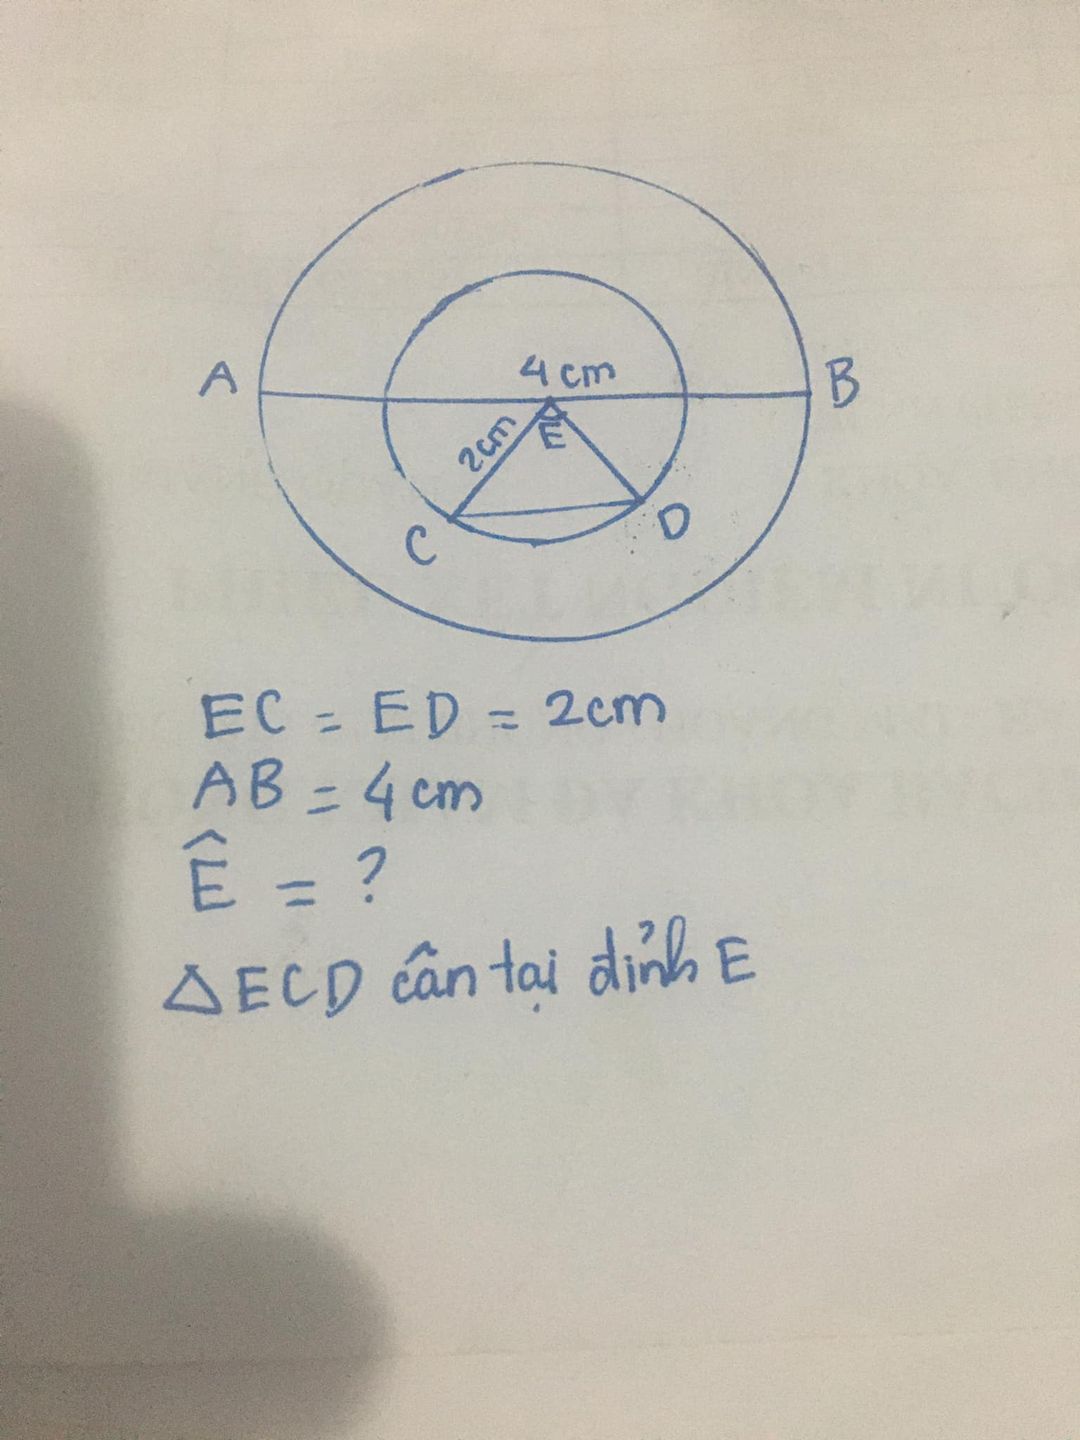 A
4cm
B
2cm
E
C
D
EC = ED = 2cm
AB = 4cm
Ê = ?
△ECD cân tại đỉnh E